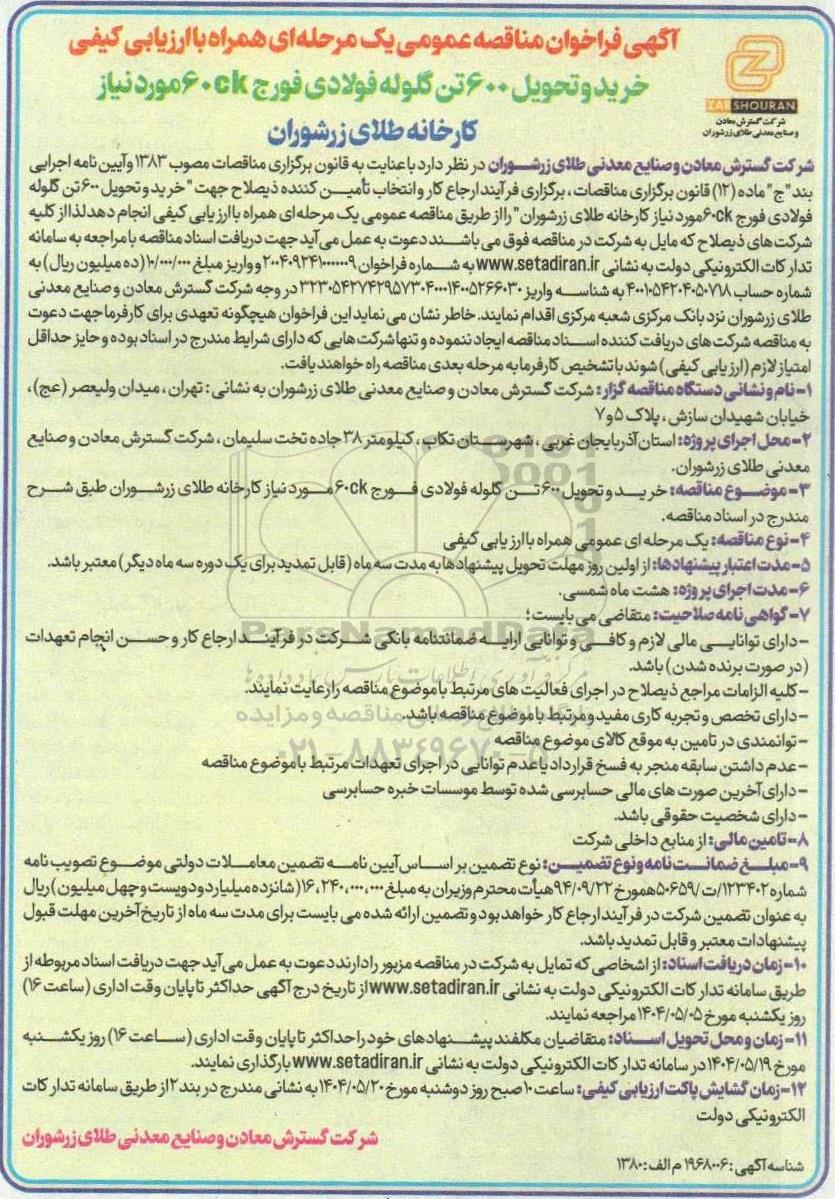 آگهی فراخوان مناقصه عمومی یک مرحله‌ای همراه با ارزیابی کیفی
خرید و تحویل ۶۰۰ تن گلوله فولادی فورج ۶۰ck مورد نیاز
کارخانه طلای زرشوران
ZARSHOURAN
شرکت گسترش معادن
و صنایع معدنی طلای زرشوران
شرکت گسترش معادن و صنایع معدنی طلای زرشوران در نظر دارد با عنایت به قانون برگزاری مناقصات مصوب ۱۳۸۳ و آیین نامه اجرایی
بند "ج" ماده (۱۲) قانون برگزاری مناقصات، برگزاری فرآیند ارجاع کار و انتخاب تأمین کننده ذیصلاح جهت "خرید و تحویل ۶۰۰ تن گلوله
فولادی فورج ۶۰ck مورد نیاز کارخانه طلای زرشوران" را از طریق مناقصه عمومی یک مرحله‌ای همراه با ارزیابی کیفی انجام دهد لذا از کلیه
شرکت های ذیصلاح که مایل به شرکت در مناقصه فوق می باشند دعوت به عمل می آید جهت دریافت اسناد مناقصه با مراجعه به سامانه
تدارکات الکترونیکی دولت به نشانی www.setadiran.ir به شماره فراخوان ۲۰۰۴۰۹۲۴۱۰۰۰۰۰۰۹ و واریز مبلغ ۱۰/۰۰۰/۰۰۰ (ده میلیون ریال) به
شماره حساب ۴۰۰۱۰۵۴۲۰۴۰۵۰۷۱۸ به شناسه واریز ۳۲۳۰۵۴۲۷۴۲۹۵۷۳۰۴۰۰۰۱۴۰۰۵۲۶۶۰۳۰ در وجه شرکت گسترش معادن و صنایع معدنی
طلای زرشوران نزد بانک مرکزی شعبه مرکزی اقدام نمایند. خاطر نشان می نماید این فراخوان هیچگونه تعهدی برای کارفرما جهت دعوت
به مناقصه شرکت های دریافت کننده اسناد مناقصه ایجاد ننموده و تنها شرکت هایی که دارای شرایط مندرج در اسناد بوده و حایز حداقل
امتیاز لازم (ارزیابی کیفی) شوند با تشخیص کارفرما به مرحله بعدی مناقصه راه خواهند یافت.
۱- نام و نشانی دستگاه مناقصه گزار: شرکت گسترش معادن و صنایع معدنی طلای زرشوران به نشانی: تهران، میدان ولیعصر (عج)،
خیابان شهیدان سازش، پلاک ۵ و ۷
۲- محل اجرای پروژه: استان آذربایجان غربی، شهرستان تکاب، کیلومتر ۳۸ جاده تخت سلیمان، شرکت گسترش معادن و صنایع
معدنی طلای زرشوران.
۳- موضوع مناقصه: خرید و تحویل ۶۰۰ تن گلوله فولادی فورج ۶۰ck مورد نیاز کارخانه طلای زرشوران طبق شرح
مندرج در اسناد مناقصه.
۴- نوع مناقصه: یک مرحله ای عمومی همراه با ارزیابی کیفی
۵- مدت اعتبار پیشنهادها: از اولین روز مهلت تحویل پیشنهادها به مدت سه ماه (قابل تمدید برای یک دوره سه ماه دیگر) معتبر باشد.
۶- مدت اجرای پروژه: هشت ماه شمسی.
۷- گواهی نامه صلاحیت: متقاضی می بایست؛
- دارای توانایی مالی لازم و کافی و توانایی ارایه ضمانتنامه بانکی شرکت در فرآیند ارجاع کار و حسن انجام تعهدات
(در صورت برنده شدن) باشد.
- کلیه الزامات مراجع ذیصلاح در اجرای فعالیت های مرتبط با موضوع مناقصه را رعایت نمایند.
- دارای تخصص و تجربه کاری مفید و مرتبط با موضوع مناقصه باشد.
- توانمندی در تامین به موقع کالای موضوع مناقصه
- عدم داشتن سابقه منجر به فسخ قرارداد یا عدم توانایی در اجرای تعهدات مرتبط با موضوع مناقصه
- دارای آخرین صورت های مالی حسابرسی شده توسط موسسات خبره حسابرسی
- دارای شخصیت حقوقی باشد.
۸- تامین مالی: از منابع داخلی شرکت
۹- مبلغ ضمانت نامه و نوع تضمین: نوع تضمین بر اساس آیین نامه تضمین معاملات دولتی موضوع تصویب نامه
شماره ۱۲۳۴۰۲/ت/۵۰۶۵۹ه مورخ ۹۴/۰۹/۲۲ هیأت محترم وزیران به مبلغ ۱۶،۲۴۰،۰۰۰،۰۰۰ (شانزده میلیارد و دویست و چهل میلیون) ریال
به عنوان تضمین شرکت در فرآیند ارجاع کار خواهد بود و تضمین ارائه شده می بایست برای مدت سه ماه از تاریخ آخرین مهلت قبول
پیشنهادات معتبر و قابل تمدید باشد.
۱۰- زمان دریافت اسناد: از اشخاصی که تمایل به شرکت در مناقصه مزبور را دارند دعوت به عمل می آید جهت دریافت اسناد مربوطه از
طریق سامانه تدارکات الکترونیکی دولت به نشانی www.setadiran.ir از تاریخ درج آگهی حداکثر تا پایان وقت اداری (ساعت ۱۶)
روز یکشنبه مورخ ۱۴۰۴/۰۵/۰۵ مراجعه نمایند.
۱۱- زمان و محل تحویل اسناد: متقاضیان مکلفند پیشنهادهای خود را حداکثر تا پایان وقت اداری (ساعت ۱۶) روز یکشنبه
مورخ ۱۴۰۴/۰۵/۱۹ در سامانه تدارکات الکترونیکی دولت به نشانی www.setadiran.ir بارگذاری نمایند.
۱۲- زمان گشایش پاکت ارزیابی کیفی: ساعت ۱۰ صبح روز دوشنبه مورخ ۱۴۰۴/۰۵/۲۰ به نشانی مندرج در بند ۲ از طریق سامانه تدارکات
الکترونیکی دولت
شرکت گسترش معادن و صنایع معدنی طلای زرشوران
شناسه آگهی: ۱۹۶۸۰۰۶ م الف: ۱۳۸۰
ParsNamadData
۰۲۱-۸۸۳۴۹۶۷۰-۵